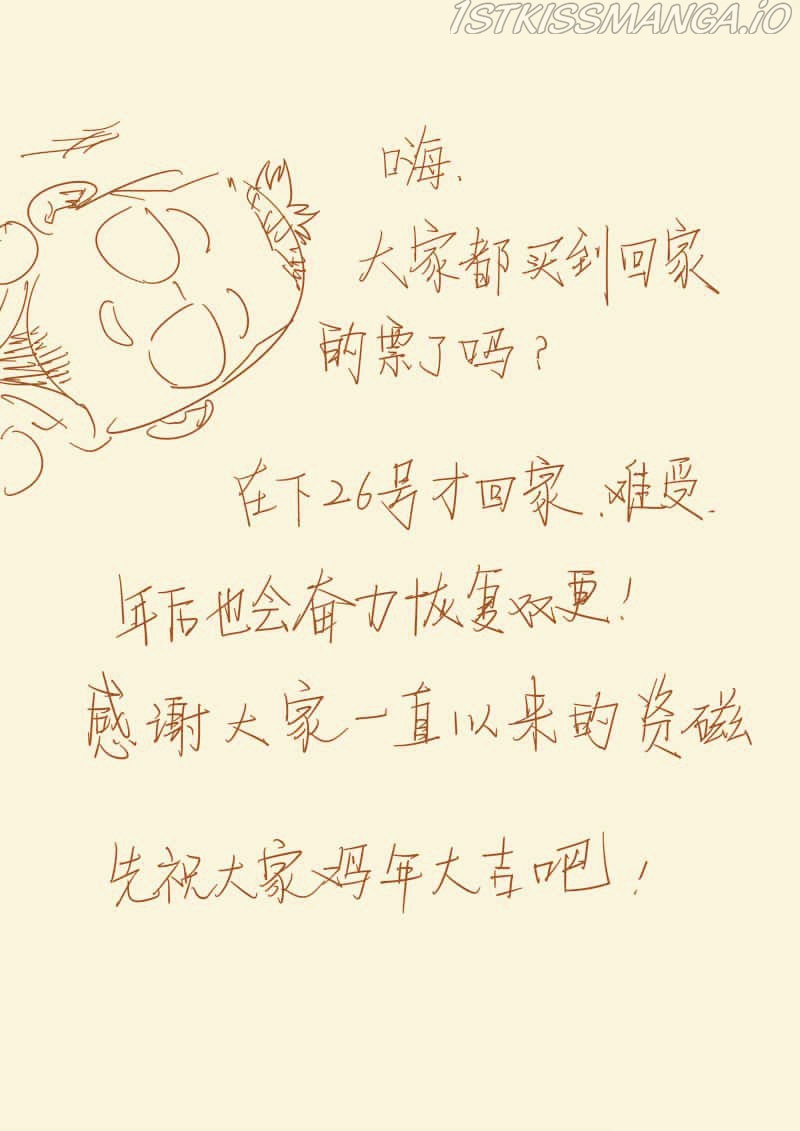 1STKISSMANGA.IO
嗨.
大家都买到回家
的票了吗?
在下26号才回家.难受.
年后也会奋力恢复双更!
感谢大家一直以来的资磁
先祝大家鸡年大吉吧!